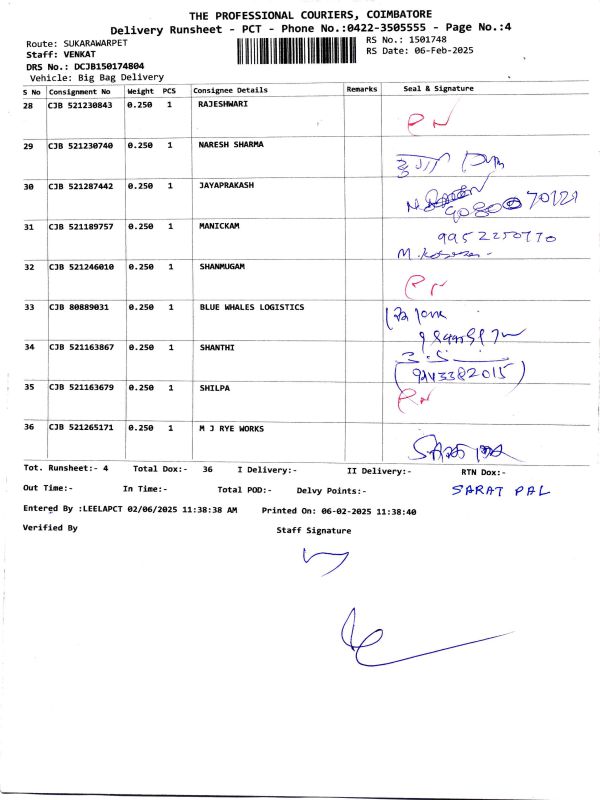 THE PROFESSIONAL COURIERS, COIMBATORE
Delivery Runsheet - PCT - Phone No.:0422-3505555 - Page No.:4
Route: SUKARAWARPET
RS No.: 1501748
Staff: VENKAT
RS Date: 06-Feb-2025
DRS No.: DCJB150174804
Vehicle: Big Bag Delivery
S No Consignment No Weight PCS Consignee Details Remarks Seal & Signature
28 CJB 521230843 0.250 1 RAJESHWARI
29 CJB 521230740 0.250 1 NARESH SHARMA
30 CJB 521287442 0.250 1 JAYAPRAKASH
31 CJB 521189757 0.250 1 MANICKAM
9952250770
32 CJB 521246010 0.250 1 SHANMUGAM
33 CJB 80889031 0.250 1 BLUE WHALES LOGISTICS
34 CJB 521163867 0.250 1 SHANTHI
35 CJB 521163679 0.250 1 SHILPA
36 CJB 521265171 0.250 1 M J RYE WORKS
Tot. Runsheet:- 4 Total Dox:- 36 I Delivery:- II Delivery:- RTN Dox:-
Out Time:- In Time:- Total POD:- Delvy Points:- SARAT PAL
Entered By :LEELAPCT 02/06/2025 11:38:38 AM Printed On: 06-02-2025 11:38:40
Verified By Staff Signature